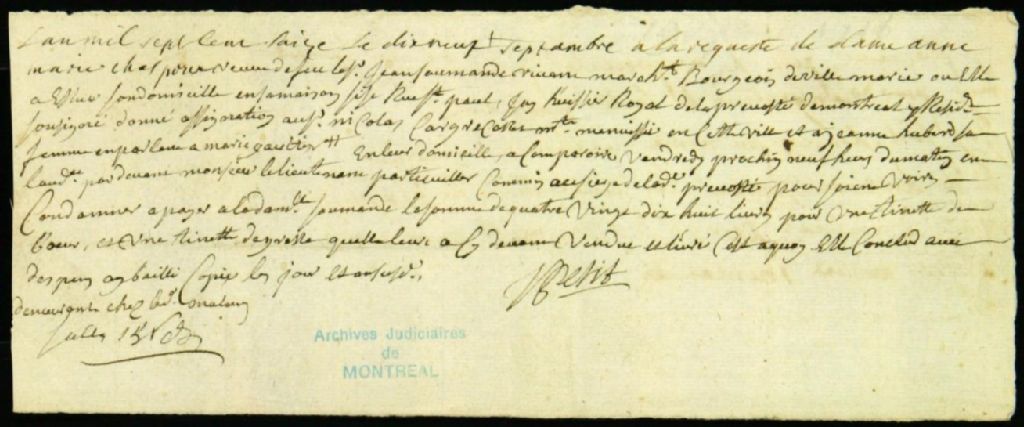 L'an mil sept cent saize le dix neuf septambre a la requeste de dame anne
marie chaspoux veuve de feu le Sr. Jean soumande vivant march.t Bourgeois de ville marie ou Elle
a Esleu son domicille en sa maison size Rue St. paul, Jay huissier Royal de la prevosté de montreal y Resid.t
sousigné donné assignation au Sr. nicolas m.tre menuissié en Cette ville et a jeanne huberd sa
femme en parlant a marie gautier En leur domicille, a Comparoir vendredy prochin neuf heures du matin en
pardevant monsieur le lieutenant particullier Commis au siege de lad.t prevosté pour soient voir
Condamner a payer a lad. soumande la somme de quatre vingt dix huit livres pour une tinette de
beur, et une tinette de gresse quelle leur a cy devant vendue et livré Cest a quoy Elle Conclud avec
despens ay baillé Copie les jour et an susd.
demeurant chez
Petit
Archives Judiciaires
de
MONTREAL